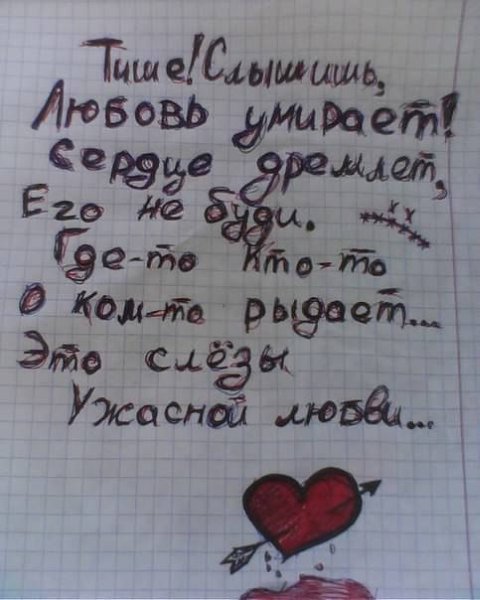 Тише! Слышишь,
Любовь умирает!
Сердце дремлет,
Его не буди.
Где-то кто-то
О ком-то рыдает...
Это слёзы
Ужасной любви...